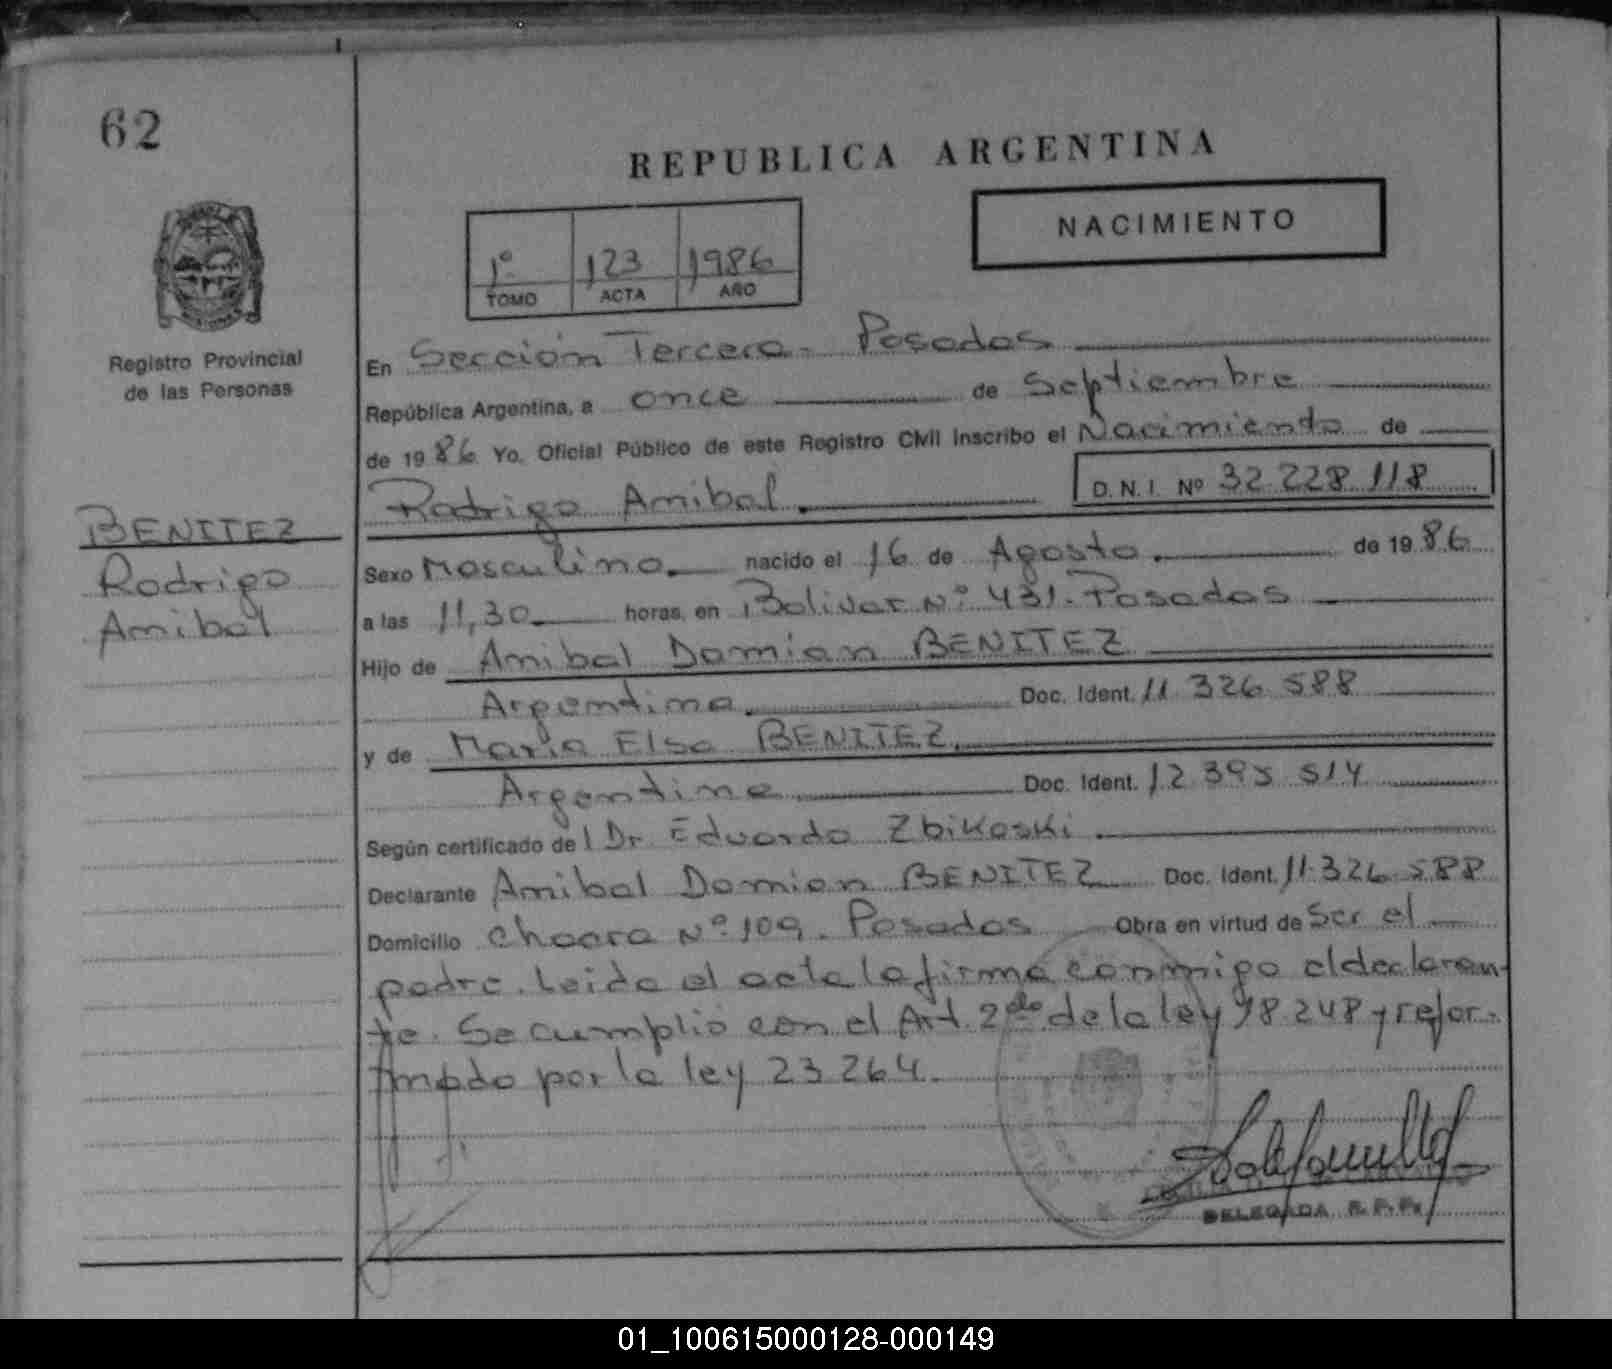 62
REPUBLICA ARGENTINA
NACIMIENTO
1º 123 1986
TOMO ACTA AÑO
Registro Provincial
de las Personas
En Sección Tercera - Posadas
República Argentina, a once de Septiembre
de 1986 Yo, Oficial Público de este Registro Civil inscribo el Nacimiento de
Rodrigo Anibal. D.N.I. Nº 32 228 118
BENITEZ
Rodrigo
Anibal
Sexo Masculino. nacido el 16 de Agosto. de 1986
a las 11,30 horas, en Bolivar Nº 431. Posadas
Hijo de Anibal Damian BENITEZ
Argentino. Doc. Ident. 11 326 588
y de Maria Elsa BENITEZ.
Argentina Doc. Ident. 12 395 514
Según certificado del Dr. Eduardo Zbikoski.
Declarante Anibal Damian BENITEZ Doc. Ident. 11.326.588
Domicilio Chacra Nº 109. Posadas Obra en virtud de Ser el
padre. Leida el acta la firma conmigo el declaran-
te. Se cumplió con el Art. 2do de la ley 18.248 y refor-
mado por la ley 23 264.
DELEGADA R. P. P.
01_100615000128-000149